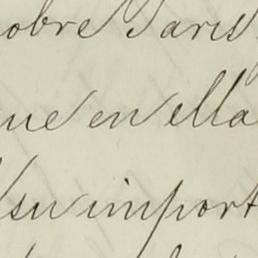 sobre Paris
que en ella
su import